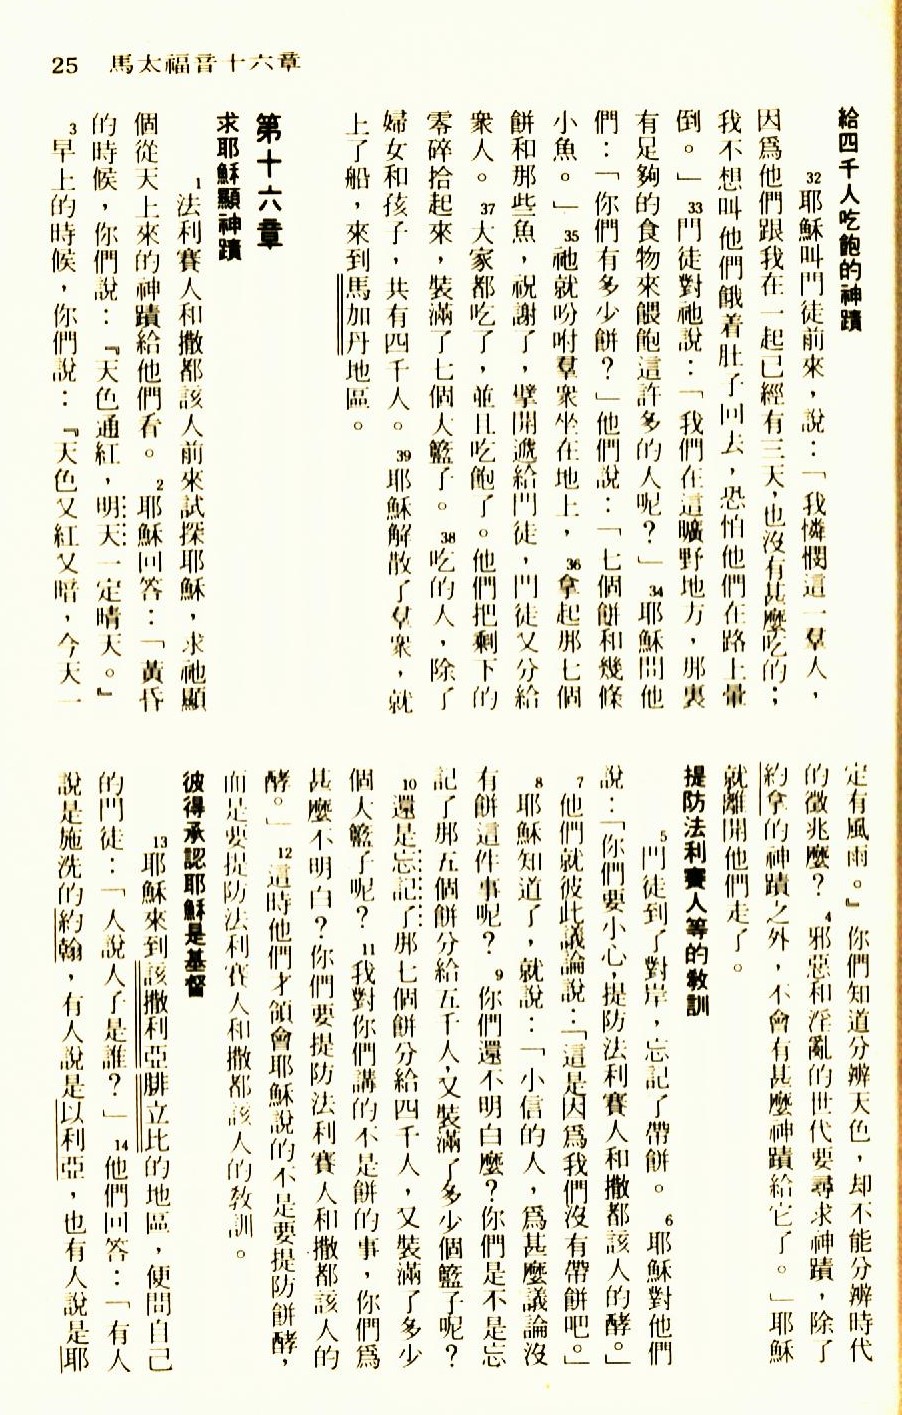 25 馬太福音十六章
給四千人吃飽的神蹟
32耶穌叫門徒前來，說：「我憐憫這一羣人，
因爲他們跟我在一起已經有三天，也沒有甚麼吃的；
我不想叫他們餓着肚子回去，恐怕他們在路上暈
倒。」33門徒對祂說：「我們在這曠野地方，那裏
有足夠的食物來餵飽這許多的人呢？」34耶穌問他
們：「你們有多少餅？」他們說：「七個餅和幾條
小魚。」35祂就吩咐羣衆坐在地上，36拿起那七個
餅和那些魚，祝謝了，擘開遞給門徒，門徒又分給
衆人。37大家都吃了，並且吃飽了。他們把剩下的
零碎拾起來，裝滿了七個大籃子。38吃的人，除了
婦女和孩子，共有四千人。39耶穌解散了羣衆，就
上了船，來到馬加丹地區。
第十六章
求耶穌顯神蹟
1法利賽人和撒都該人前來試探耶穌，求祂顯
個從天上來的神蹟給他們看。2耶穌回答：「黃昏
的時候，你們說：『天色通紅，明天一定晴天。』
3早上的時候，你們說：『天色又紅又暗，今天一
定有風雨。』你們知道分辨天色，却不能分辨時代
的徵兆麼？4邪惡和淫亂的世代要尋求神蹟，除了
約拿的神蹟之外，不會有甚麼神蹟給它了。」耶穌
就離開他們走了。
提防法利賽人等的教訓
5門徒到了對岸，忘記了帶餅。6耶穌對他們
說：「你們要小心，提防法利賽人和撒都該人的酵。」
7他們就彼此議論說：「這是因爲我們沒有帶餅吧。」
8耶穌知道了，就說：「小信的人，爲甚麼議論沒
有餅這件事呢？9你們還不明白麼？你們是不是忘
記了那五個餅分給五千人，又裝滿了多少個籃子呢？
10還是忘記了那七個餅分給四千人，又裝滿了多少
個大籃子呢？11我對你們講的不是餅的事，你們爲
甚麼不明白？你們要提防法利賽人和撒都該人的
酵。」12這時他們才領會耶穌說的不是要提防餅酵，
而是要提防法利賽人和撒都該人的教訓。
彼得承認耶穌是基督
13耶穌來到該撒利亞腓立比的地區，便問自己
的門徒：「人說人子是誰？」14他們回答：「有人
說是施洗的約翰，有人說是以利亞，也有人說是耶